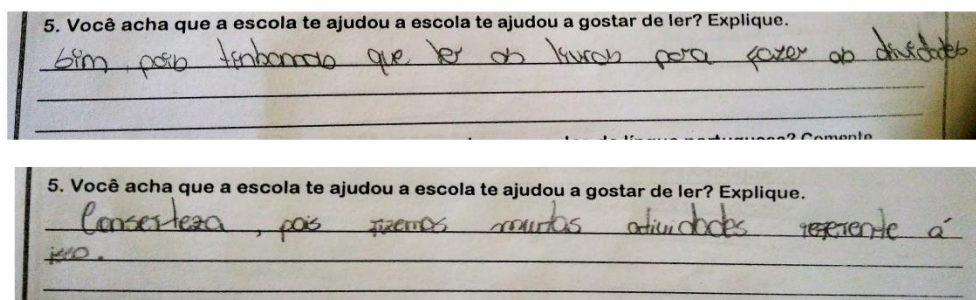 5. Você acha que a escola te ajudou a escola te ajudou a gostar de ler? Explique.
Sim, pois tinhamos que ler os livros para fazer as atividades
5. Você acha que a escola te ajudou a escola te ajudou a gostar de ler? Explique.
Conserteza, pois fizemos muitas atividades referente á
isso.